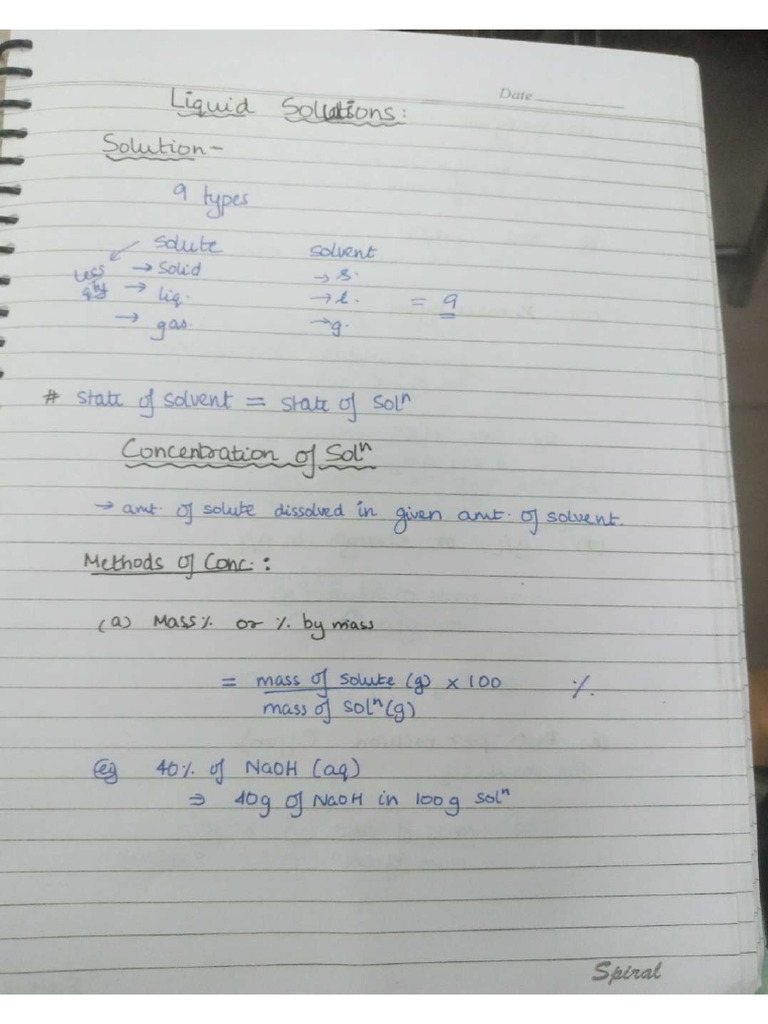 Date
Liquid Solutions:
Solution-
9 types
Solute solvent
less qty → Solid → s.
→ liq. → l. = 9
→ gas. → g.
# State of solvent = State of Solⁿ
Concentration of Solⁿ
→ amt. of solute dissolved in given amt. of solvent.
Methods of Conc.:
(a) Mass% or % by mass
= mass of Solute (g) × 100 %.
mass of Solⁿ(g)
eg 40% of NaOH (aq)
⇒ 40g of NaOH in 100g solⁿ
Spiral